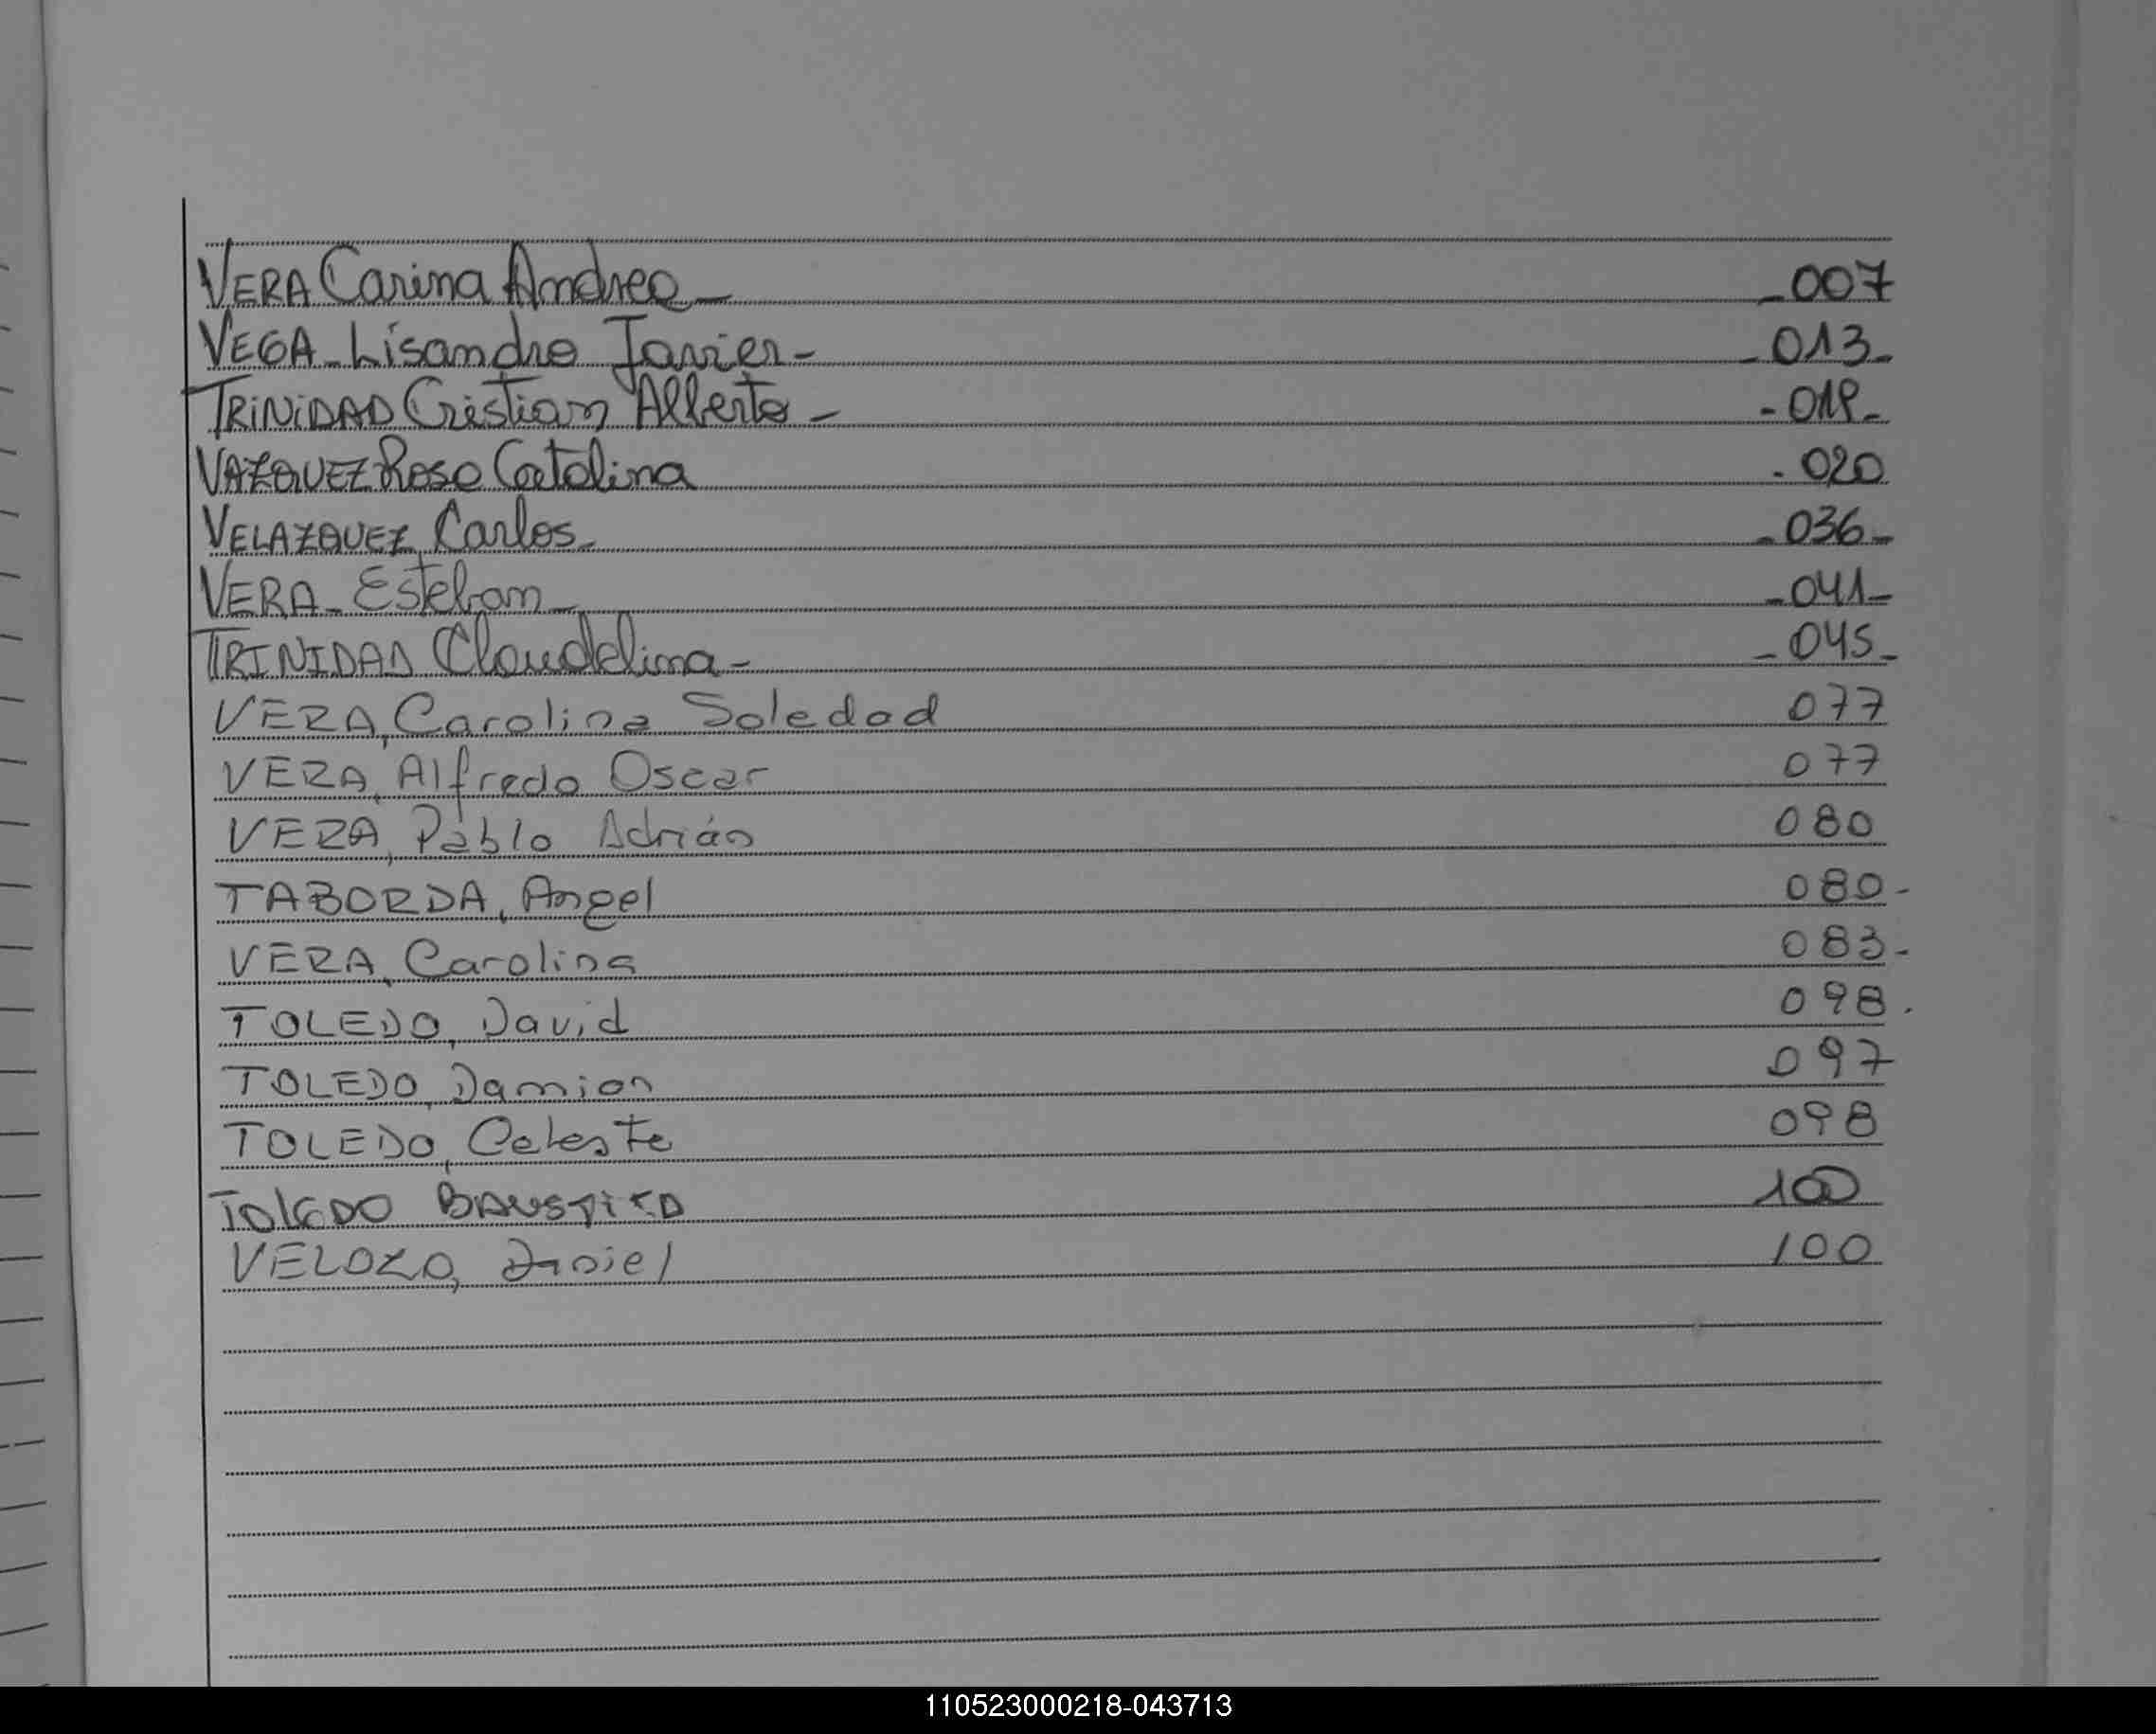 VERA Carina Andrea _ _007
VEGA_Lisandro Javier - _013_
TRINIDAD Cristian Alberto - -019-
VAZQUEZ Rosa Catalina - 020
VELAZQUEZ, Carlos_ _036_
VERA_Esteban_ _041_
TRINIDAD Claudelina - _045_
VERA, Carolina Soledad 077
VERA, Alfredo Oscar 077
VERA, Pablo Adrián 080
TABORDA, Angel 080-
VERA, Carolina 083-
TOLEDO, David 098.
TOLEDO, Damian 097
TOLEDO, Celeste 098
TOLEDO 100
VELOZO, Daniel 100
110523000218-043713